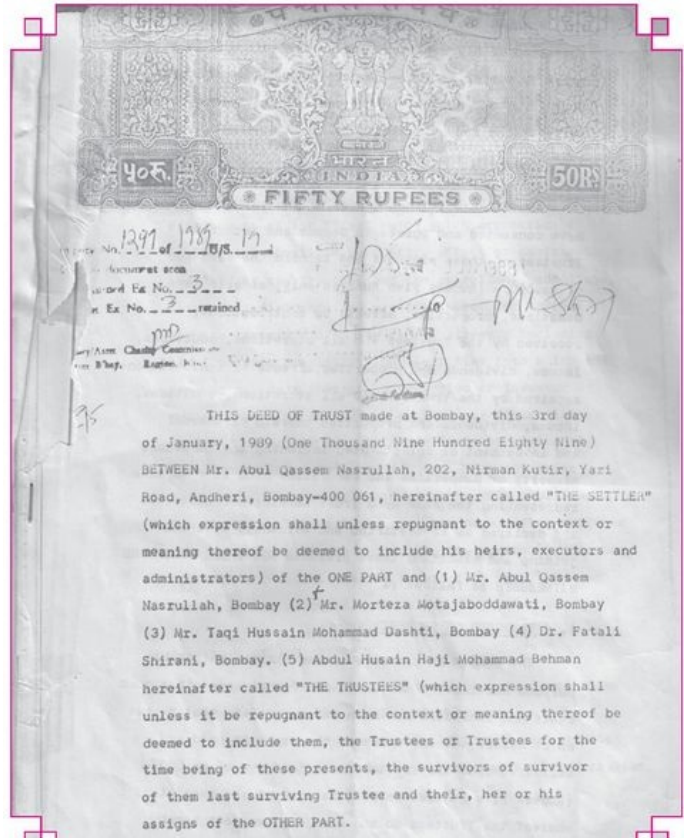 ५०रु.
भारत
INDIA
50RS.
FIFTY RUPEES
No. 1291 of 1989 U/S. 19
document area
Ex No. 3
Ex No. 3 retained
THIS DEED OF TRUST made at Bombay, this 3rd day
of January, 1989 (One Thousand Nine Hundred Eighty Nine)
BETWEEN Mr. Abul Qassem Nasrullah, 202, Nirman Kutir, Yari
Road, Andheri, Bombay-400 061, hereinafter called "THE SETTLER"
(which expression shall unless repugnant to the context or
meaning thereof be deemed to include his heirs, executors and
administrators) of the ONE PART and (1) Mr. Abul Qassem
Nasrullah, Bombay (2) Mr. Morteza Motajaboddawati, Bombay
(3) Mr. Taqi Hussain Mohammad Dashti, Bombay (4) Dr. Fatali
Shirani, Bombay. (5) Abdul Husain Haji Mohammad Behman
hereinafter called "THE TRUSTEES" (which expression shall
unless it be repugnant to the context or meaning thereof be
deemed to include them, the Trustees or Trustees for the
time being of these presents, the survivors of survivor
of them last surviving Trustee and their, her or his
assigns of the OTHER PART.